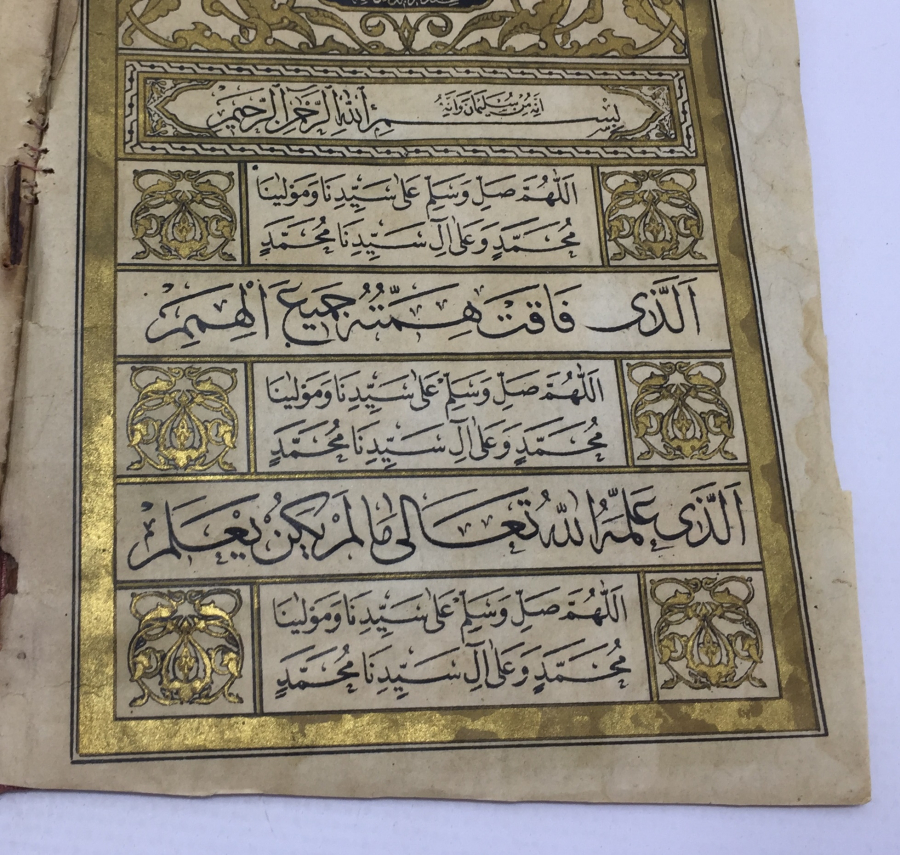 إِنَّهُ مِنْ سُلَيْمَانَ وَإِنَّهُ
بِسْمِ اللهِ الرَّحْمٰنِ الرَّحِيمِ
اَللّٰهُمَّ صَلِّ وَسَلِّمْ عَلٰى سَيِّدِنَا وَمَوْلَيْنَا
مُحَمَّدٍ وَعَلٰى اٰلِ سَيِّدِنَا مُحَمَّدٍ
اَلَّذِى فَاقَتْ هِمَّتُهُ جَمِيعَ الْهِمَمِ
اَللّٰهُمَّ صَلِّ وَسَلِّمْ عَلٰى سَيِّدِنَا وَمَوْلَيْنَا
مُحَمَّدٍ وَعَلٰى اٰلِ سَيِّدِنَا مُحَمَّدٍ
اَلَّذِى عَلَّمَهُ اللهُ تَعَالٰى مَا لَمْ يَكُنْ يَعْلَمْ
اَللّٰهُمَّ صَلِّ وَسَلِّمْ عَلٰى سَيِّدِنَا وَمَوْلَيْنَا
مُحَمَّدٍ وَعَلٰى اٰلِ سَيِّدِنَا مُحَمَّدٍ